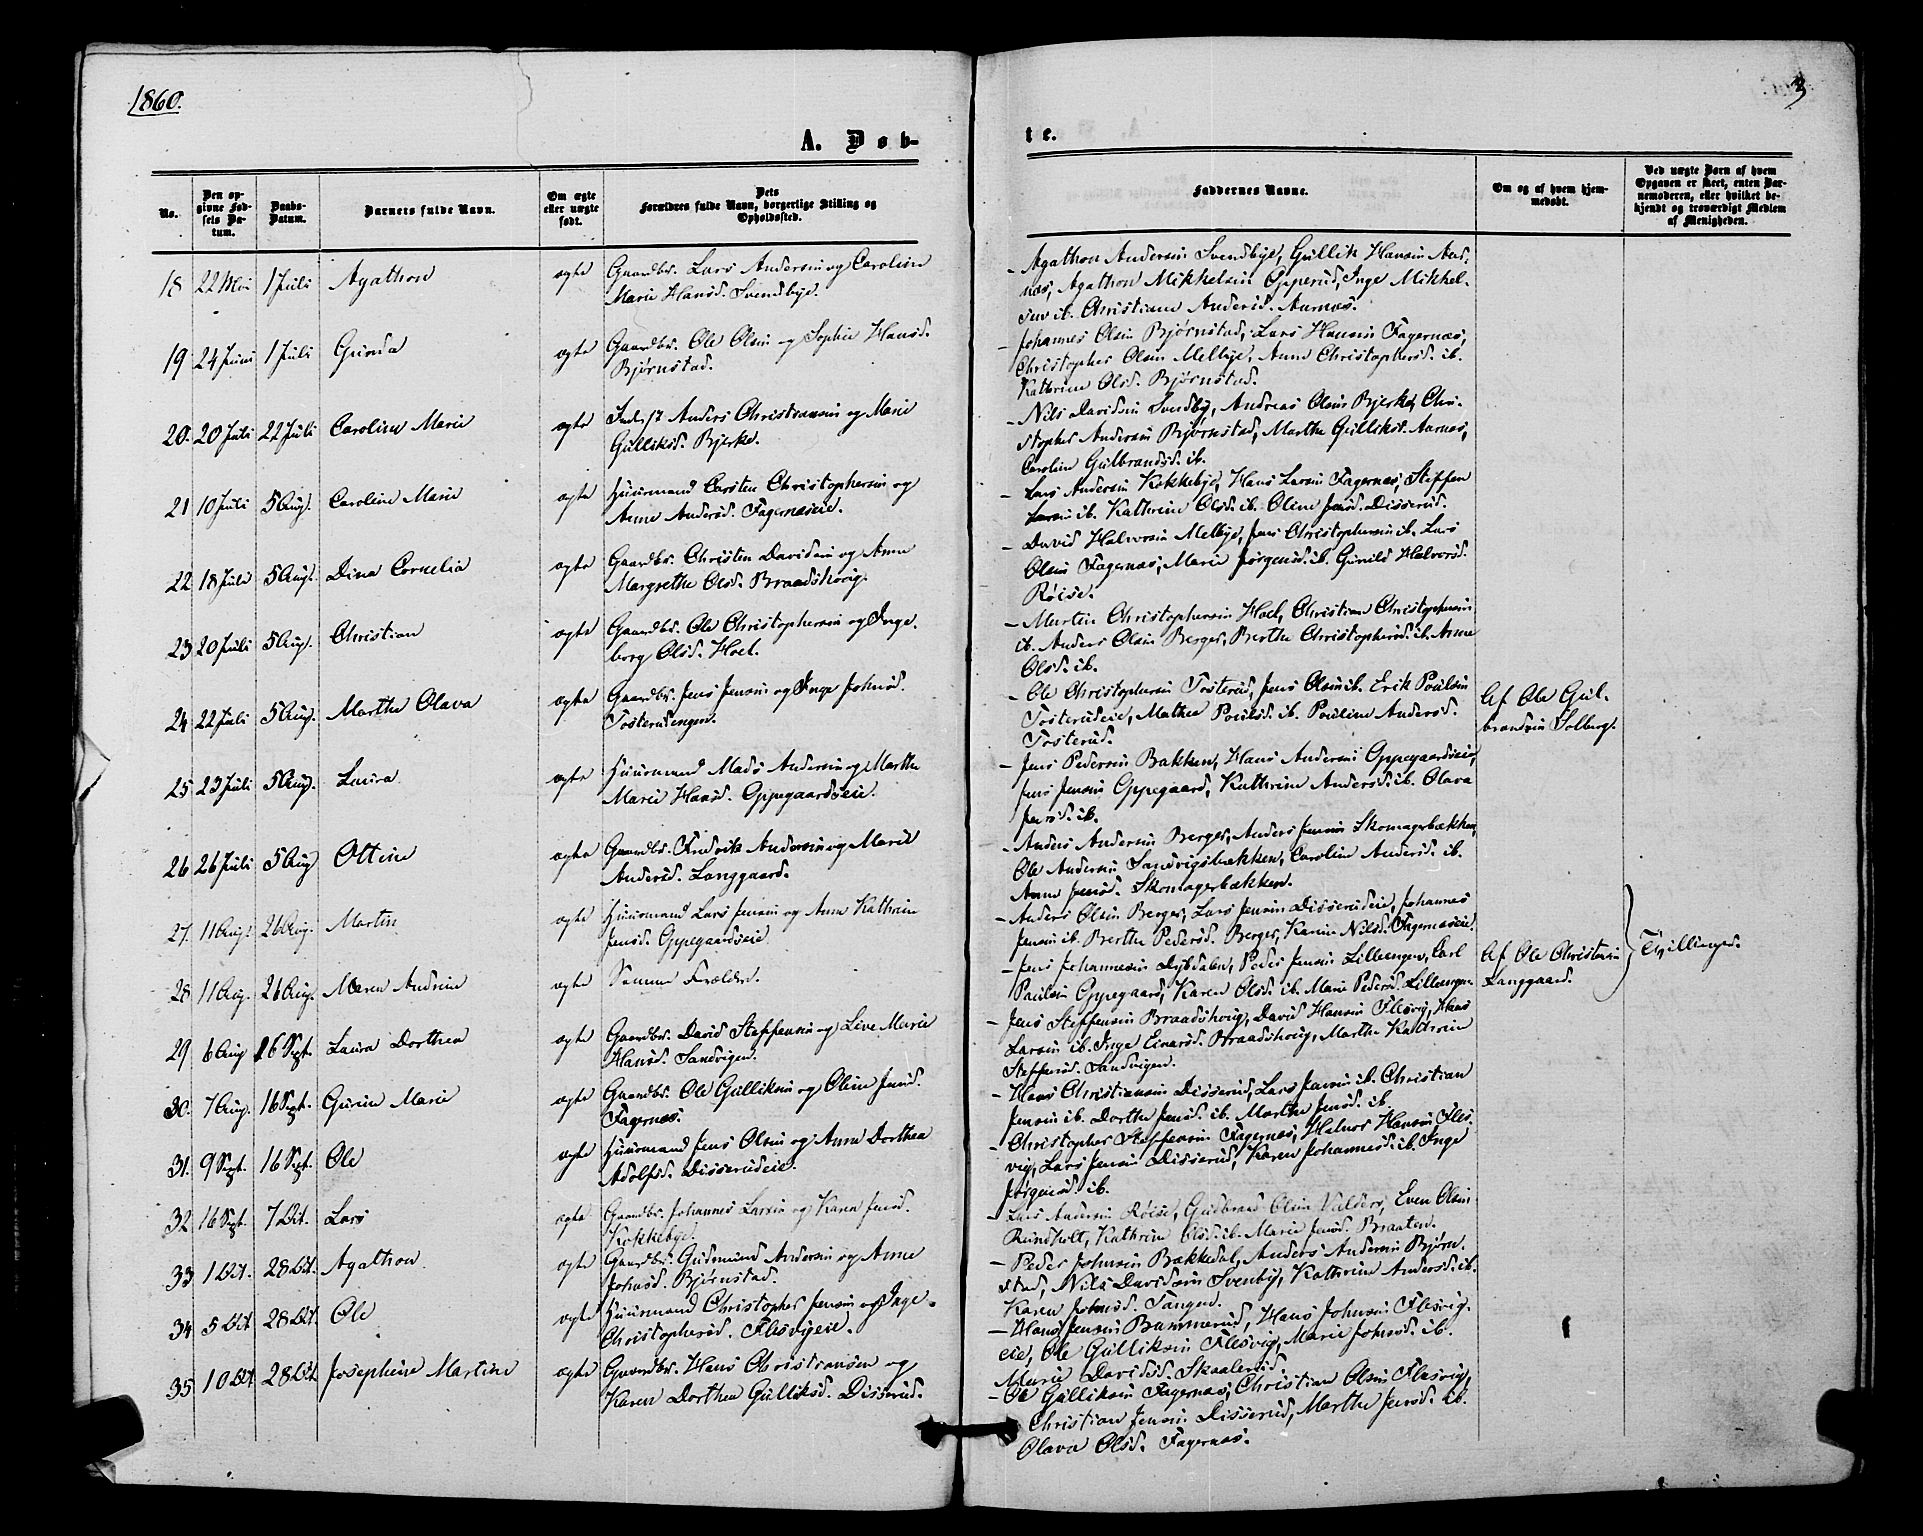 1860.
3
A. Døb-
te.
No.
Den op-
givne Fød-
sels Da-
tum.
Daabs-
Datum.
Barnets fulde Navn.
Om ægte
eller uægte
født.
Dets
Forældres fulde Navn, borgerlige Stilling og
Opholdssted.
Faddernes Navne.
Om og af hvem hjem-
medøbt.
Ved uægte Børn af hvem
Opgaven er skeet, enten Bar-
nemoderen, eller hvilket be-
kjendt og troværdigt Medlem
af Menigheden.
18 22 Mai 1 Juli Agathon ægte Gaardbr. Lars Andersen og Caroline
Marie Hansd. Svendbye.
- Agathon Andersen Svendbye, Gullik Hansen Aar-
næs, Agathon Mikkelsen Opperud, Inge Mikkel-
sen ib. Christiane Andersd. Aarnæs.
19 24 Juni 1 Juli Gunda ægte Gaardbr. Ole Olsen og Sophie Hansd.
Bjørnstad.
- Johannes Olsen Bjørnstad, Lars Hansen Fagernæs,
Christopher Olsen Melbye, Anne Christophersd. ib.
Kathrine Olsd. Bjørnstad.
20. 20 Juli 22 Juli Caroline Marie ægte Inderst Anders Christiansen og Marie
Gulliksd. Bjerke.
- Nils Davidsen Svendby, Andreas Olsen Bjerke, Chri-
stopher Andersen Bjørnstad, Marthe Gulliksd. Aarnæs,
Caroline Gulbrandsd. ib.
21 10 Juli 5 Aug. Caroline Marie ægte Huusmand Carsten Christophersen og
Anne Andersd. Fagernæseie.
- Lars Andersen Kokkebye, Hans Larsen Fagernæs, Steffen
Larsen ib. Kathrine Olsd. ib. Oline Jensd. Disserud.
22 18 Juli 5 Aug. Dina Cornelia ægte Gaardbr. Christen Davidsen og Anne
Margrethe Olsd. Braadshoug.
- David Halvorsen Melbye, Jens Christophersen ib. Lars
Olsen Fagernæs, Marie Jørgensd. ib. Gunild Halvorsd.
Røise.
23 20 Juli 5 Aug. Christian ægte Gaardbr. Ole Christophersen og Inge-
borg Olsd. Hoel.
- Martin Christophersen Hoel, Christian Christophersen
ib. Anders Olsen Berger, Berthe Christophersd. ib. Anne
Olsd. ib.
24 22 Juli 5 Aug. Marthe Olava ægte Gaardbr. Jens Jensen og Inge Johnsd.
Tosterudengen.
- Ole Christophersen Tosterud, Jens Olsen ib. Erik Poulsen
Tosterudeie, Mathea Poulsd. ib. Pauline Andersd.
Tosterud.
Af Ole Gul-
brandsen Solberg.
25 23 Juli 5 Aug. Laura ægte Huusmand Mads Andersen og Marthe
Marie Hansd. Oppegaardseie.
- Jens Pedersen Bakken, Hans Andersen Oppegaardseie,
Jens Jensen Oppegaard, Kathrine Andersd. ib. Olava
Jensd. ib.
26 26 Juli 5 Aug Ottine ægte Gaardbr. Fredrik Andersen og Marie
Andersd. Langgaard.
- Anders Andersen Berger, Anders Jensen Skomagerbækken,
Ole Andersen Sandvigsbækken, Caroline Andersd. ib.
Anne Jensd. Skomagerbækken.
27. 11 Aug. 26 Aug. Martin ægte Huusmand Lars Jensen og Anne Kathrine
Jensd. Oppegaardseie
- Anders Olsen Berger, Lars Jensen Disserudeie, Johannes
Jensen ib. Berthe Pedersd. Berger, Karine Nilsd. Fagernæseie.
28 11 Aug. 26 Aug. Maren Andrine ægte Samme Forældre.
- Jens Johannesen Dybdalen, Peder Jensen Lilleengen, Carl
Paulsen Oppegaard, Karen Olsd. ib. Marie Pedersd. Lilleengen
Af Ole Christensen
Langgaard.
Tvillinger.
29 6 Aug 16 Sept. Laura Dorthea ægte Gaardbr. David Steffensen og Live Marie
Hansd. Sandvigen.
- Jens Steffensen Braadshoug, David Hansen Flesvig, Hans
Larsen ib. Inge Einarsd. Braadshoug, Marthe Kathrine
Steffensd. Sandvigen.
30. 7 Aug. 16 Sept. Gurine Marie ægte Gaardbr. Ole Gulliksen og Oline Jensd.
Fagernæs.
- Hans Christiansen Disserud, Lars Jensen ib. Christian
Jensen ib. Dorthe Jensd. ib. Marthe Jensd. ib.
31. 9 Sept. 16 Sept. Ole ægte Huusmand Jens Olsen og Anne Dorthea
Adolfsd. Disserudeie.
- Christopher Steffensen Fagernæs, Halvor Hansen Fles-
vig, Lars Jensen Disserud, Karen Johannesd. ib. Inge
Jørgensd. ib.
32 16 Sept. 7 Oct. Lars ægte Gaardbr. Johannes Larsen og Karen Jensd.
Kokkebye.
- Lars Andersen Røise, Gudbrand Olsen Valders, Even Olsen
Rundholt, Kathrine Olsd. ib. Marie Jensd. Braaten.
33 1 Oct. 28 Oct. Agathon. ægte Gaardbr. Gudmund Andersen og Anne
Johnsd. Bjørnstad.
- Peder Johnsen Bækkedal, Anders Andersen Bjørn-
stad, Nils Davidsen Svenby, Kathrine Andersd. ib.
Karen Johnsd. Tangen.
34 5 Oct 28 Oct. Ole ægte Huusmand Christopher Jensen og Inge
Christophersd. Flesvigeie.
- Hans Jensen Bammerud, Hans Johnsen Flesvig-
eie, Ole Gulliksen Flesvig, Marie Johnsd. ib.
Marie Davidsd. Skaalerud.
35 10 Oct 28 Oct Josephine Martine ægte Gaardbr. Hans Christiansen og
Karen Dorthea Gulliksd. Disserud.
- Ole Gulliksen Fagernæs, Christian Olsen Flesvig,
Christian Jensen Disserud, Marthe Jensd. ib.
Olava Olsd. Fagernæs.